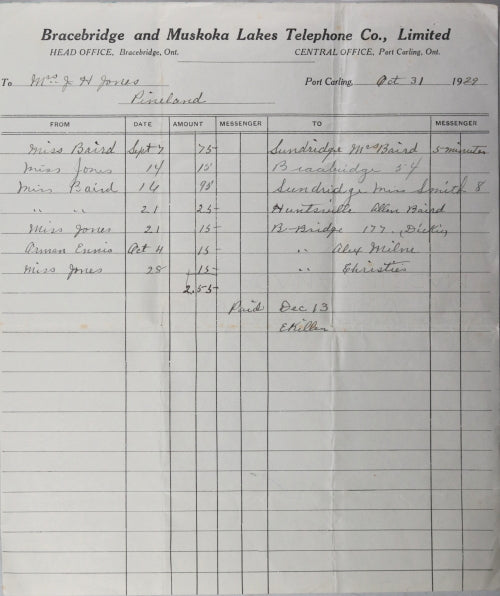 Bracebridge and Muskoka Lakes Telephone Co., Limited
HEAD OFFICE, Bracebridge, Ont. CENTRAL OFFICE, Port Carling, Ont.
To Mrs J H Jones Port Carling, Oct 31 1922
Pineland
FROM DATE AMOUNT MESSENGER TO MESSENGER
Miss Baird Sept 7 75 Sundridge Mrs Baird 5 minutes
Miss Jones 14 15 Bracebridge 54
Miss Baird 14 95 Sundridge Miss Smith 8
" " 21 25 Huntsville Allen Baird
Miss Jones 21 15 B-Bridge 177. (Dickie)
Ennis Oct 4 15 " Alex Milne
Miss Jones 28 15 " Christies
2.55
Paid Dec 13
EKillen